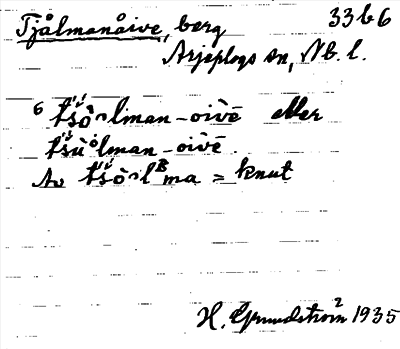 Tjålmanåive, berg 33b6
Arjeplogs sn, Nb. l.
6 tš́ò̬ₒlman-oivē eller
tš́ùₒlman-oivē.
Av tš́ò̬ₒlᴮma = knut
H. Grundström 2 1935